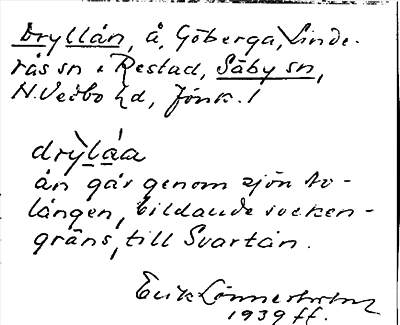 Dryllån, å, Göberga, Linde-
rås sn o Restad, Säby sn,
N. Vedbo hd, Jönk. l
drỳlảa
ån går genom sjön No-
lången, bildande socken-
gräns, till Svartån.
Erik Lönnerholm
1939 ff.